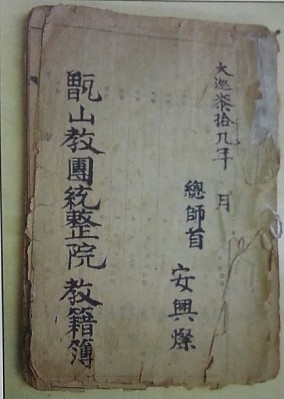 大巡柒拾九年 月
總師首 安興燦
甑山教團統整院 教籍簿